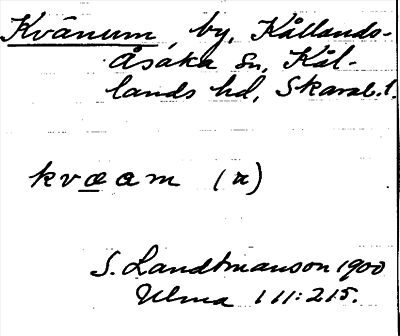 Kvänum, by, Kållands-
Åsaka sn, Kål-
lands hd, Skarab.l.
kvæam (n)
S. Landtmanson 1900
Ulma 111:215.